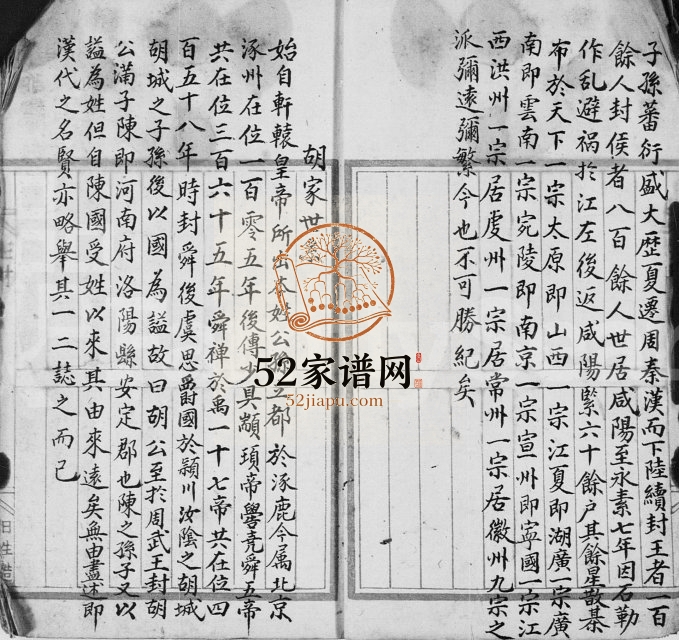 子孫蕃衍盛大歷夏遷周秦漢而下陸續封王者一百
餘人封侯者八百餘人世居咸陽至永素七年因石勒
作乱避祸於江左後返咸陽緊六十餘户其餘星散碁
布於天下一宗太原即山西一宗江夏即湖廣一宗廣
南即雲南一宗宛陵即南京一宗宣州即寧國一宗江
西洪州一宗居虔州一宗居常州一宗居徽州九宗之
派彌遠彌繁今也不可勝紀矣
胡家世
始自軒轅皇帝所出本姓公孫立都於涿鹿今属北京
涿州在位一百零五年後傳少昊顓頊帝嚳堯舜五帝
共在位三百六十五年舜禪於禹一十七帝共在位四
百五十八年時封舜後虞思爵國於潁川汝陰之胡城
胡城之子孫後以國為謚故曰胡公至於周武王封胡
公滿子陳即河南府洛陽縣安定郡也陳之孫子又以
謚為姓但自陳國受姓以來其由來遠矣無由盡述即
漢代之名賢亦略舉其一二誌之而已
52家谱网
52jiapu.com